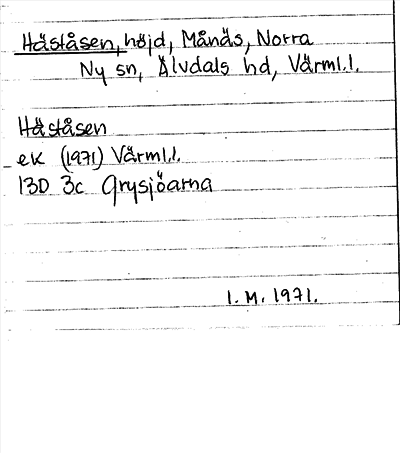 Häståsen, höjd, Månäs, Norra
Ny sn, Älvdals hd, Värml.l.
Häståsen
ek (1971) Värml.l.
13D 3c Grysjöarna
I.M. 1971.